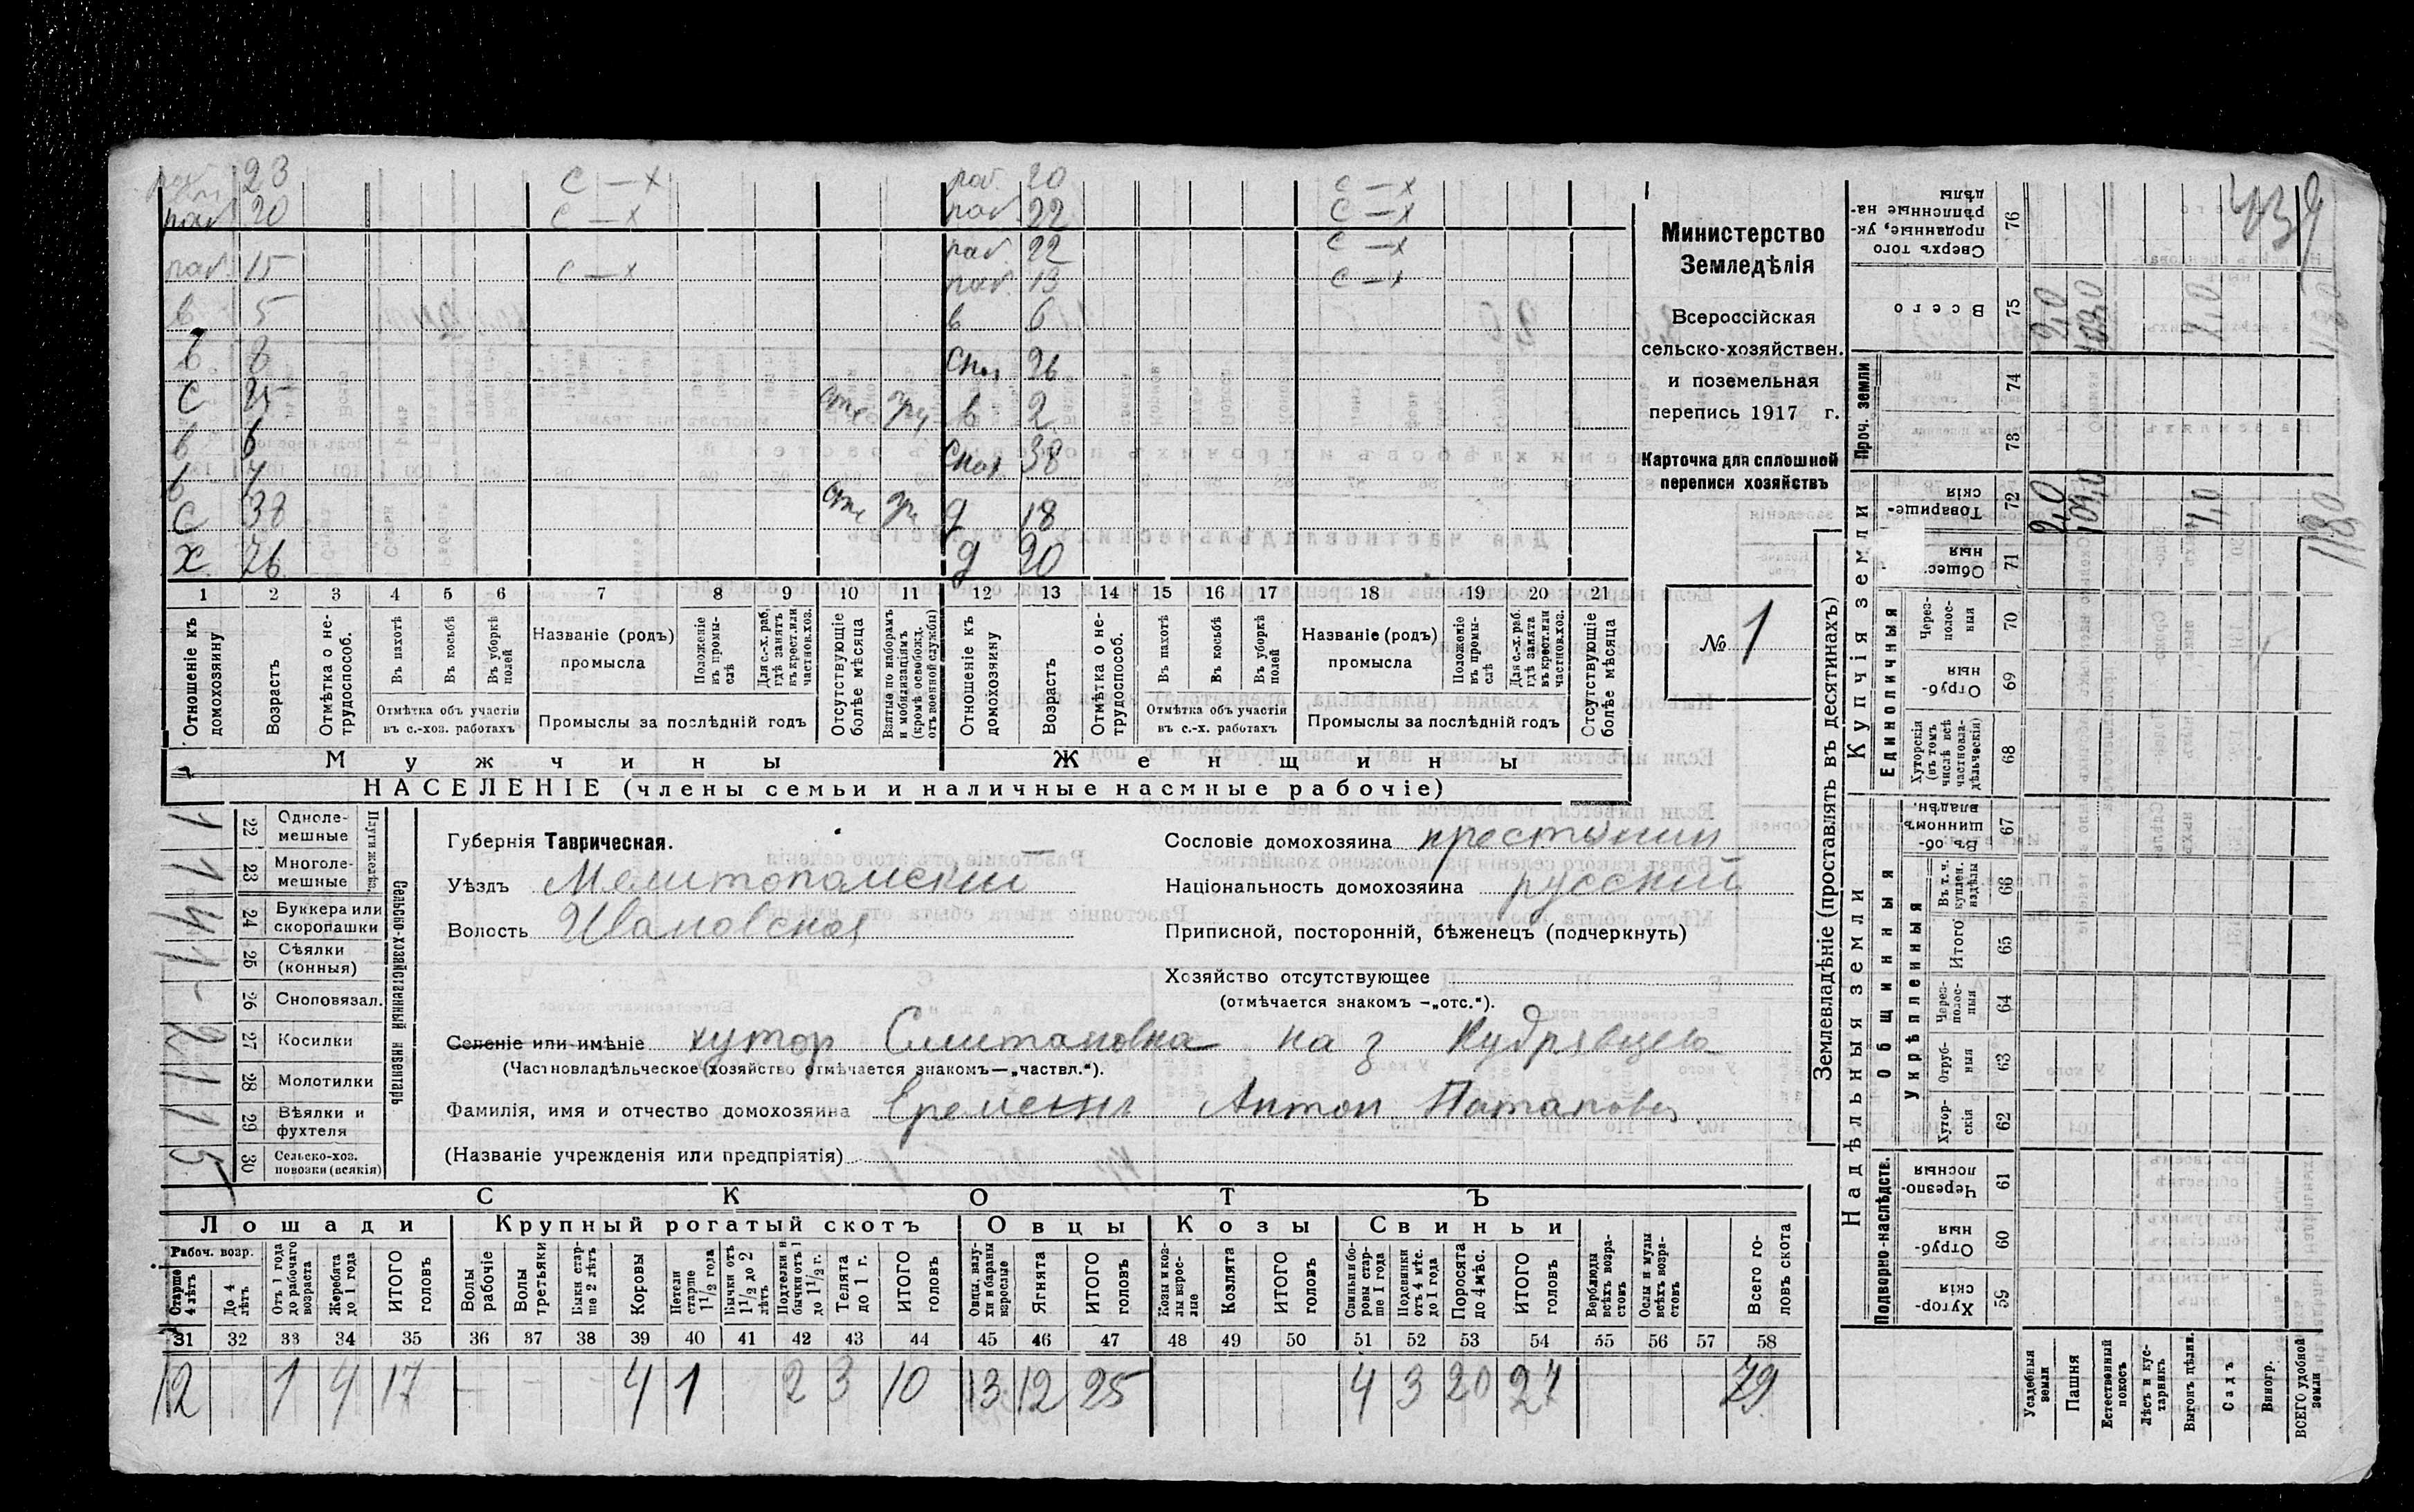 раб. 23 с — х раб. 20 с — х
раб. 20 с — х раб. 22 с — х
раб. 22 с — х
раб. 15 с — х раб. 13 с — х
в 5 в 6
в 8 сно. 26
с 25 отс в 2
в 6 снох. 38
в 7
с 38 отс д 18
х 76 д 20
1 2 3 4 5 6 7 8 9 10 11 12 13 14 15 16 17 18 19 20 21
Отношеніе къ домохозяину
Возрастъ
Отмѣтка о нетрудоспособ.
Въ пахотѣ
Въ косьбѣ
Въ уборкѣ полей
Отмѣтка объ участіи въ с.-хоз. работахъ
Названіе (родъ) промысла
Положеніе въ промыслѣ
Для с.-х. раб. гдѣ занятъ въ крест. или частнов. хоз.
Промыслы за послѣдній годъ
Отсутствующіе болѣе мѣсяца
Взятые по наборамъ и мобилизаціямъ (кромѣ освобожд. отъ военной службы)
Отношеніе къ домохозяину
Возрастъ
Отмѣтка о нетрудоспособ.
Въ пахотѣ
Въ косьбѣ
Въ уборкѣ полей
Отмѣтка объ участіи въ с.-х. работахъ
Названіе (родъ) промысла
Положеніе въ промыслѣ
Для с.-х. раб. гдѣ занята въ крест. или частнов. хоз.
Промыслы за послѣдній годъ
Отсутствующіе болѣе мѣсяца
Мужчины Женщины
НАСЕЛЕНІЕ (члены семьи и наличные наемные рабочіе)
Министерство
Земледѣлія
Всероссійская
сельско-хозяйствен.
и поземельная
перепись 1917 г.
Карточка для сплошной
переписи хозяйствъ
№ 1
Сельско-хозяйственный инвентарь
Плуги желѣз.
1 22 Однолемешные
1 23 Многолемешные
4 24 Буккера или скоропашки
1 25 Сѣялки (конныя)
- 26 Сноповязал.
2 27 Косилки
1 28 Молотилки
1 29 Вѣялки и фухтеля
5 30 Сельско-хоз. повозки (всякія)
Губернія Таврическая.
Уѣздъ Мелитопольскій
Волость Ивановская
Сословіе домохозяина крестьянин
Національность домохозяина русский
Приписной, посторонній, бѣженецъ (подчеркнуть)
Хозяйство отсутствующее
(отмѣчается знакомъ —„отс.“).
Селеніе или имѣніе хутор на з Кудрявцева
(Частновладѣльческое (хозяйство отмѣчается знакомъ—„частвл.“).
Фамилія, имя и отчество домохозяина Антон Потапов
(Названіе учрежденія или предпріятія)
СКОТЪ
Лошади Крупный рогатый скотъ Овцы Козы Свиньи
Рабоч. возр.
Старше 4 лѣтъ
До 4 лѣтъ
Отъ 1 года до рабочаго возраста
Жеребята до 1 года
ИТОГО головъ
Волы рабочіе
Волы третьяки
Быки старше 2 лѣтъ
Коровы
Нетели старше 1 1/2 года
Бычки отъ 1 1/2 до 2 лѣтъ
Подтелки и бычки отъ 1 до 1 1/2 г.
Телята до 1 г.
ИТОГО головъ
Овцы, валухи и бараны взрослые
Ягнята
ИТОГО головъ
Козы и козлы взрослые
Козлята
ИТОГО головъ
Свиньи и боровы старше 1 года
Подсвинки отъ 4 мѣс. до 1 года
Поросята до 4 мѣс.
ИТОГО головъ
Верблюды всѣхъ возрастовъ
Ослы и мулы всѣхъ возрастовъ
Всего головъ скота
31 32 33 34 35 36 37 38 39 40 41 42 43 44 45 46 47 48 49 50 51 52 53 54 55 56 57 58
12 1 4 17 - - - 4 1 2 3 10 13 12 25 4 3 20 27 79
Землевладѣніе (проставлять въ десятинахъ)
Надѣльныя земли
Купчія земли
Проч. земли
Подворно-наслѣдств.
Общинныя
Укрѣпленныя
Единоличныя
Сверхъ того проданные, укрѣпленные надѣлы 76
Всего 75 2,0 109,0 7,0
74
73
Товарищескія 72 2,0 109,0 7,0 118,0
Общественныя 71
Черезполосныя 70
Отрубныя 69
Хуторскія (въ томъ числѣ всѣ частновладѣльческія) 68
Въ общинномъ владѣн. 67
Въ т. ч. куплен. надѣлы 66
Итого 65
Черезполосныя 64
Отрубныя 63
Хуторскія 62
Черезполосныя 61
Отрубныя 60
Хуторскія 59
Усадебныя земли
Пашня
Естественный покосъ
Лѣсъ и кустарникъ
Выгонъ цѣлин.
Садъ
Виногр.
ВСЕГО удобной земли